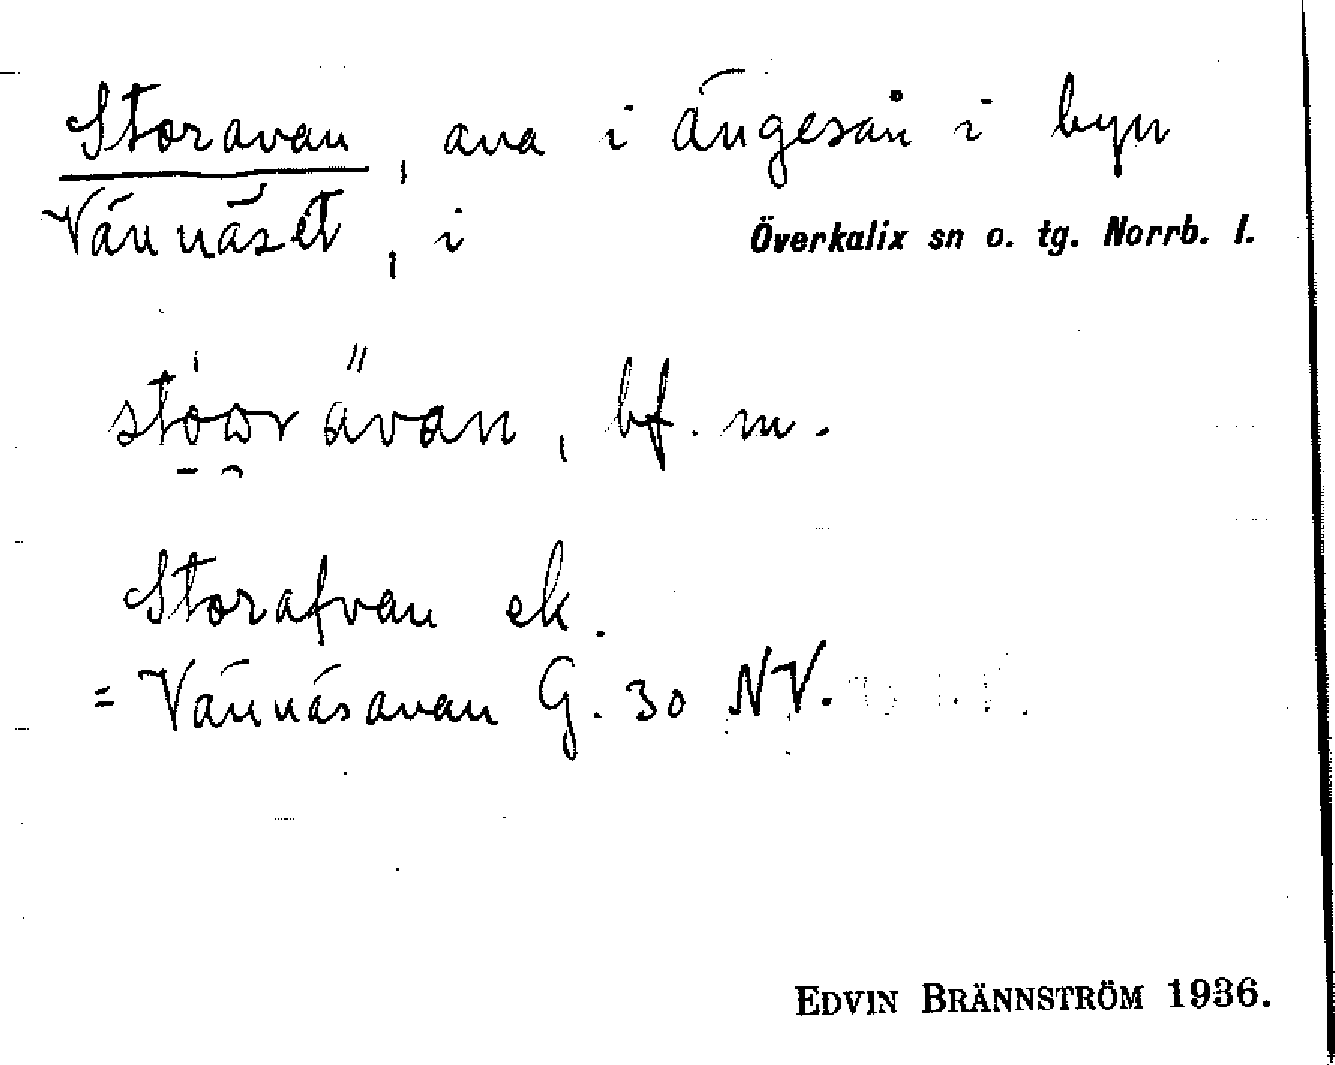 Storavan, ava i Ängesån i byn
Vännäset, i Överkalix sn o. tg. Norrb. l.
bf. m.
Storafvan ek.
= Vännäsavan G. 30 NV.
EDVIN BRÄNNSTRÖM 1936.